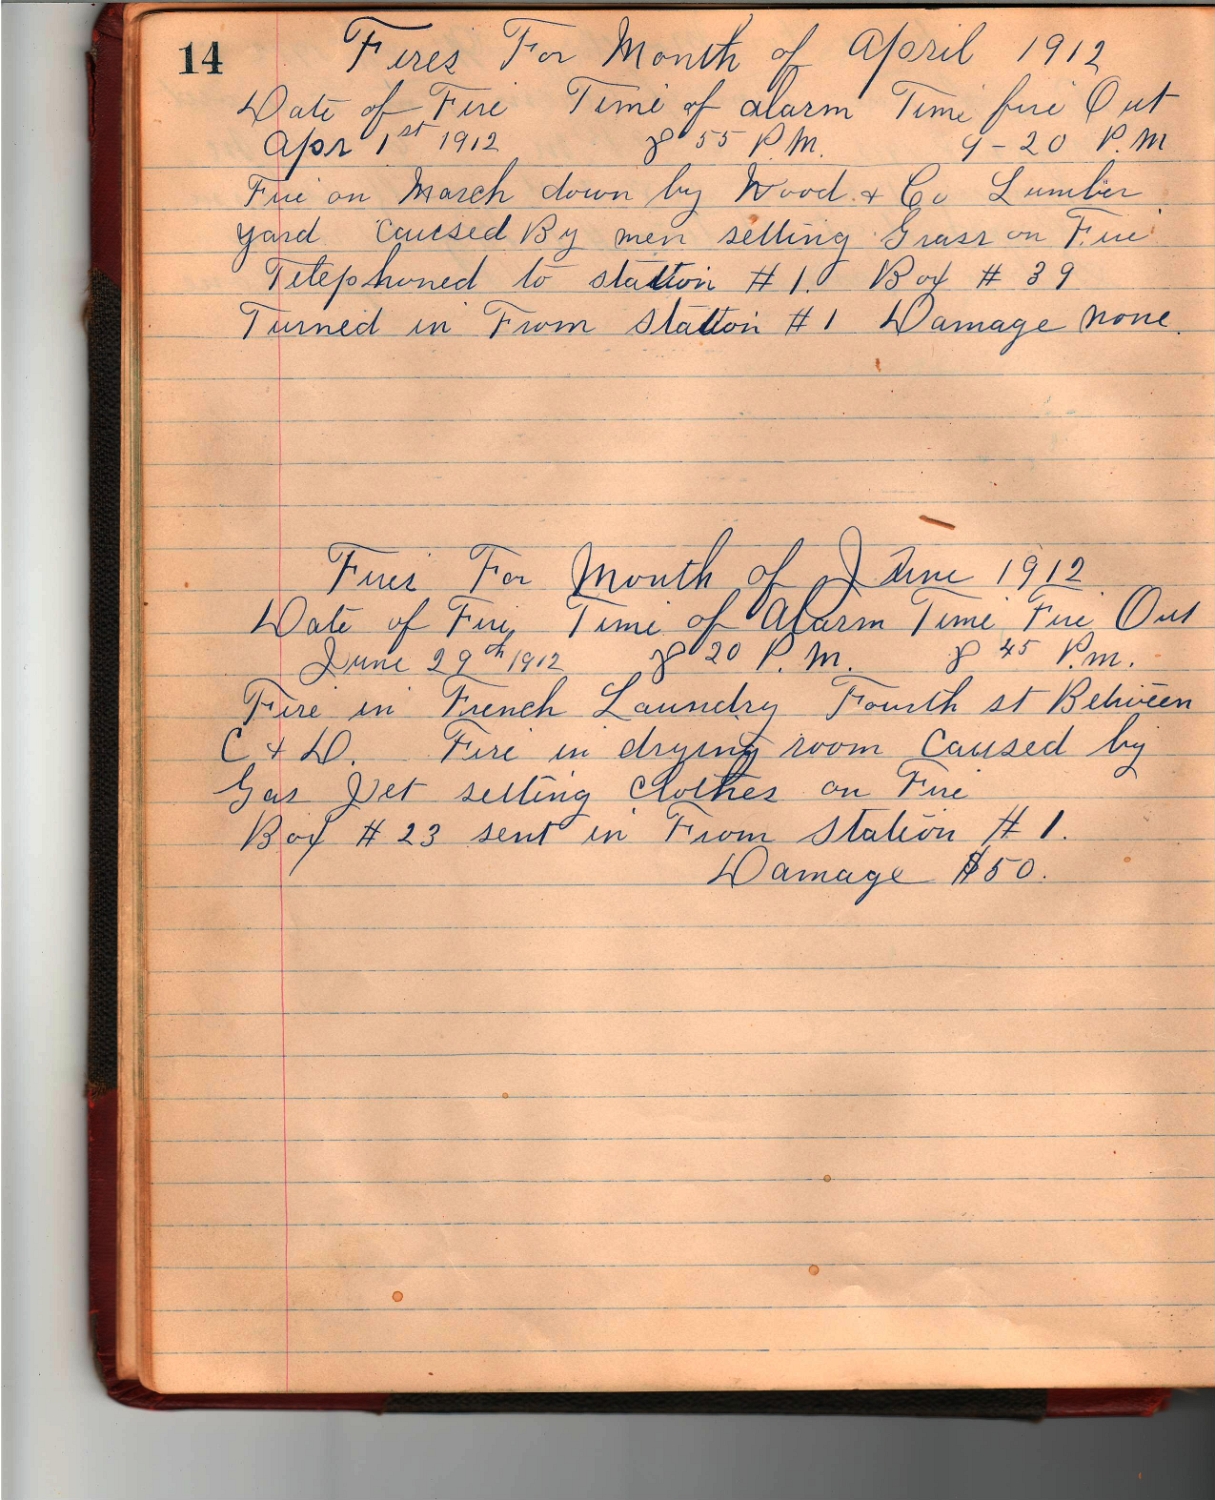 14
Fires For Month of April 1912
Date of Fire Time of alarm Time fire Out
Apr 1st 1912 8 55 P.M. 9-20 P.M
Fire on March down by Wood & Co Lumber
yard caused By men setting Grass on Fire
Telephoned to station #1. Box # 39
Turned in From Station #1 Damage none.
Fires For Month of June 1912
Date of Fire, Time of Alarm Time Fire Out
June 29th 1912 8 20 P.M. 8 45 P.m.
Fire in French Laundry Fourth st Between
C & D. Fire in drying room caused by
Gas Jet setting clothes on Fire
Box # 23 sent in From Station # 1.
Damage $50.